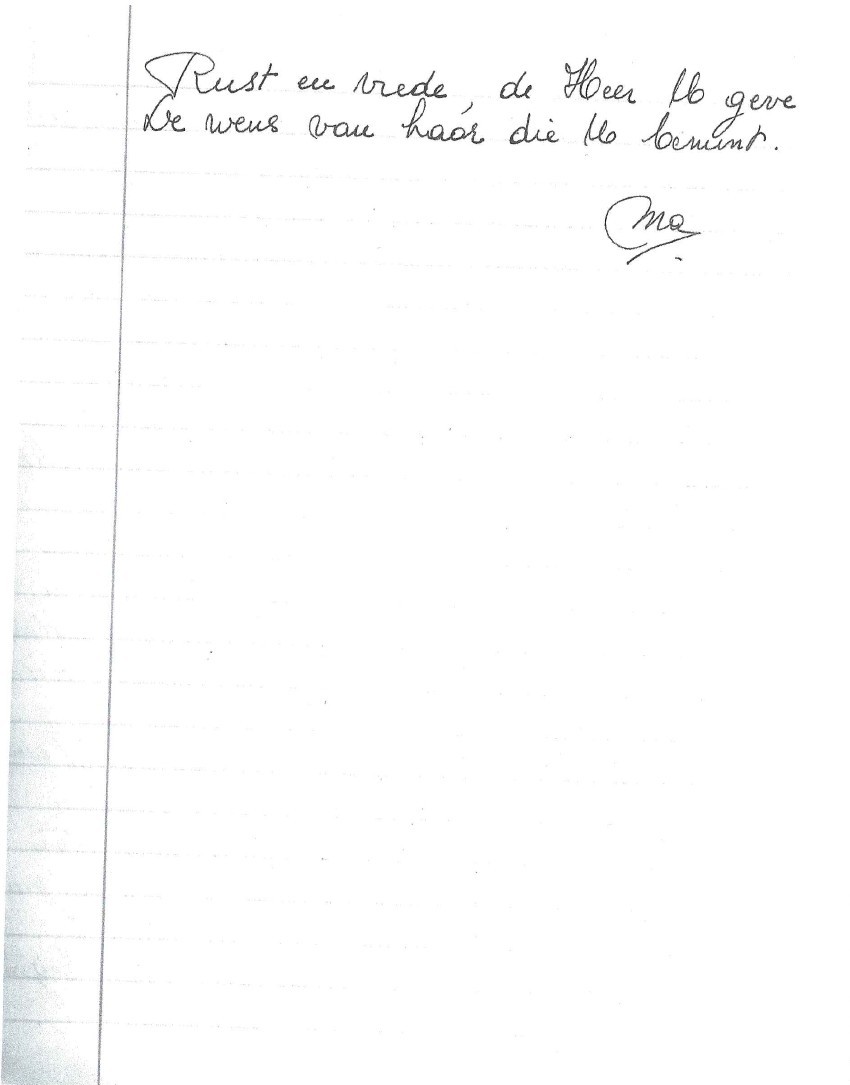 Rust en vrede, de Heer U geve
De wens van haár die U bemint.
Ma